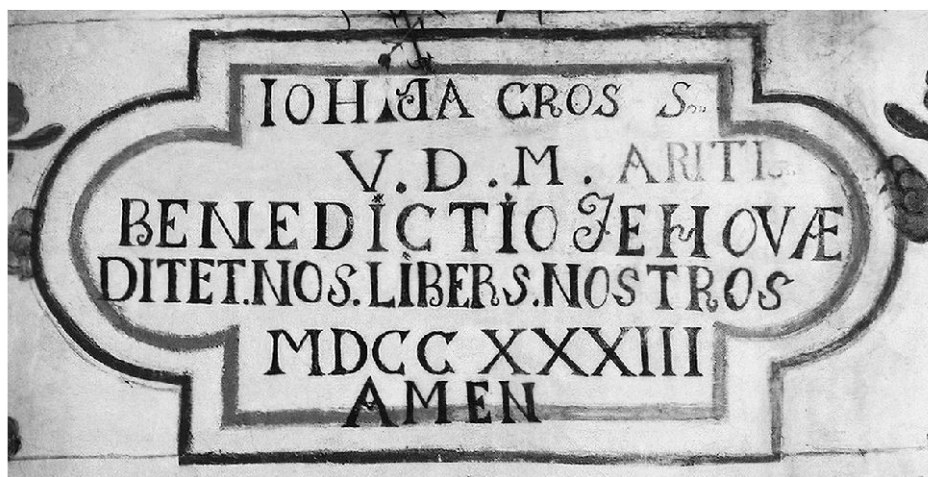 IOH. JA GROS S
V. D. M. ARITI
BENEDICTIO JEHOVÆ
DITET.NOS.LIBERS.NOSTROS
MDCC XXXIII
AMEN